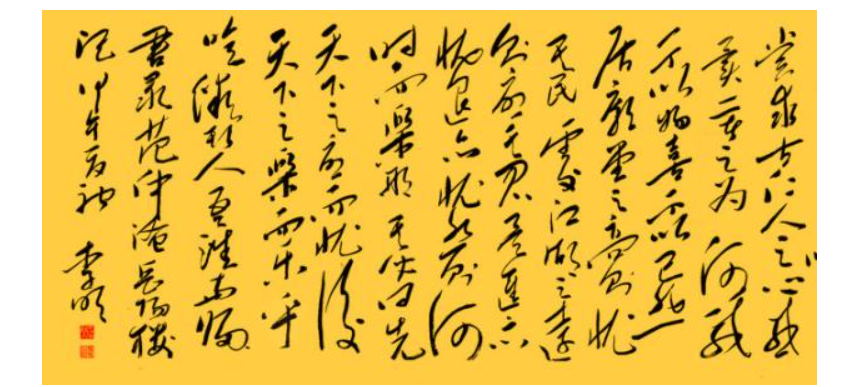 尝求古仁人之心或
异二者之为何哉
不以物喜不以己悲
居庙堂之高则忧
其民处江湖之远
则忧其君是进亦
忧退亦忧然则何
时而樂耶其必曰先
天下之忧而忧后
天下之樂而乐乎
噫微斯人吾谁与归
录范仲淹岳阳楼
记甲午 李